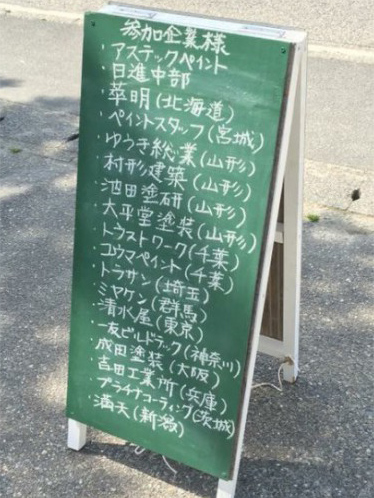 参加企業様
・アステックペイント
・日進中部
・萃明(北海道)
・ペイントスタッフ(宮城)
・ゆうき総業(山形)
・村形建築(山形)
・池田塗研(山形)
・大平堂塗装(山形)
・トラストワーク(千葉)
・ユウマペイント(千葉)
・トラサン(埼玉)
・ミヤケン(群馬)
・清水屋(東京)
・一友ビルドテック(神奈川)
・成田塗装(大阪)
・吉田工業所(兵庫)
・プラチナコーティング(茨城)
・満天(新潟)